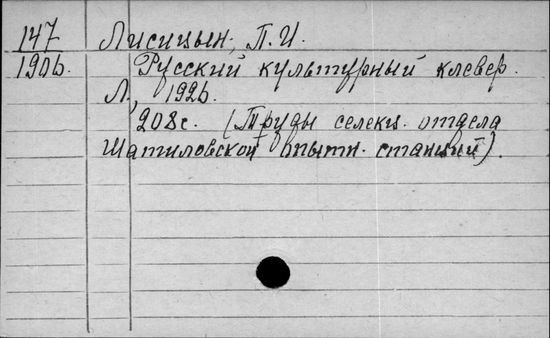 147 Лисицын, П.И.
190б. Русский культурный клевер.
Л, 192б.
208с. (Труды селекц. отдела
Шатиловской опытн. станций).